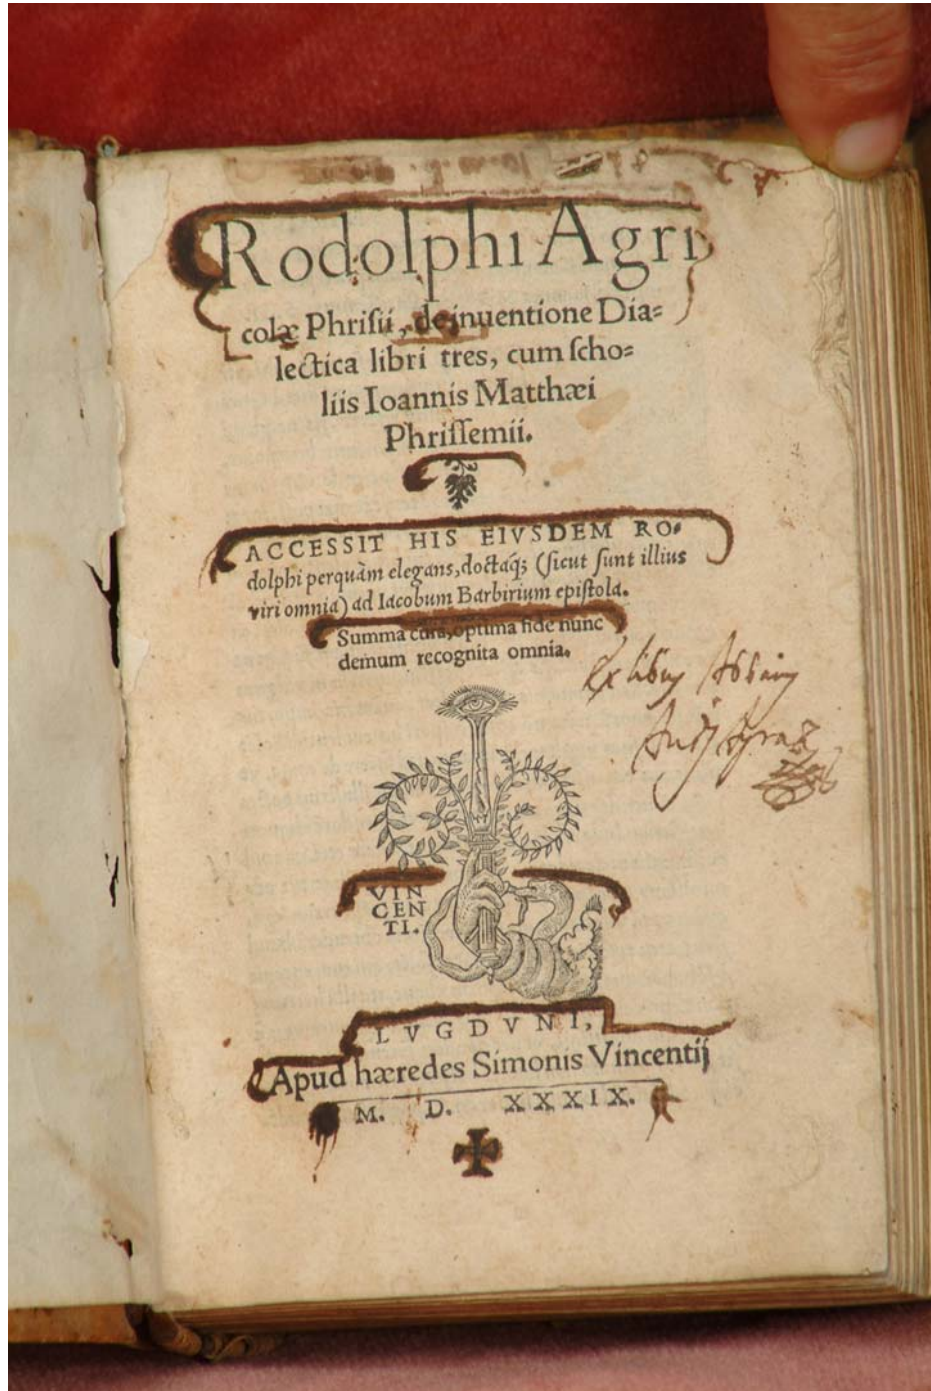 Rodolphi Agri
colæ Phrisii, de inuentione Dia=
lectica libri tres, cum scho=
liis Ioannis Matthæi
Phrissemii.
ACCESSIT HIS EIVSDEM RO=
dolphi perquàm elegans, doctáq; (sicut sunt illius
viri omnia) ad Iacobum Barbirium epistola.
Summa cura, optima fide nunc
demum recognita omnia.
Ex libris
VIN
CEN
TI.
LVGDVNI,
Apud hæredes Simonis Vincentij
M. D. XXXIX.